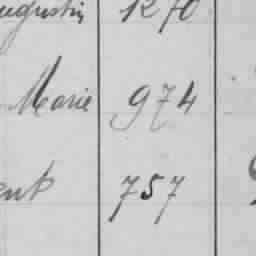 Augustin 1270
Marie 974
757